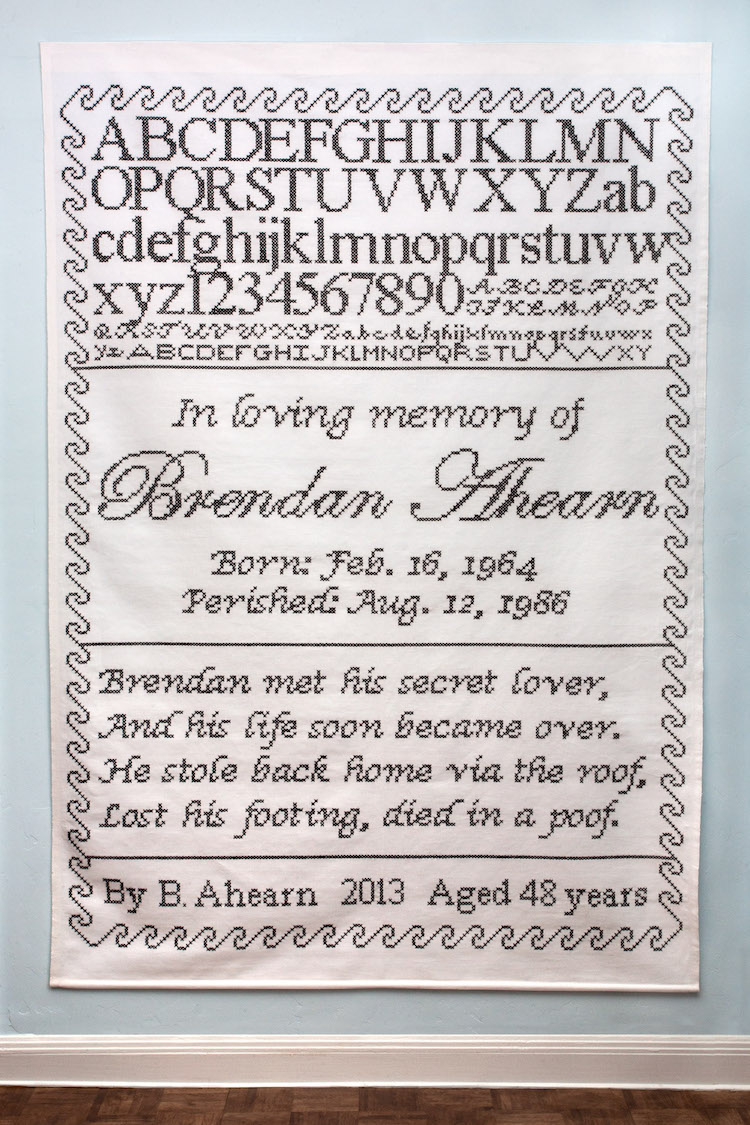 ABCDEFGHIJKLMN
OPQRSTUVWXYZab
cdefghijklmnopqrstuvw
xyz1234567890 ABCDEFGH
IJKLMNOP
QRSTUVWXYZabcdefghijklmnopqrstuvwx
yzABCDEFGHIJKLMNOPQRSTUVWXY
In loving memory of
Brendan Ahearn
Born: Feb. 16, 1964
Perished: Aug. 12, 1986
Brendan met his secret lover,
And his life soon became over.
He stole back home via the roof,
Lost his footing, died in a poof.
By B. Ahearn 2013 Aged 48 years